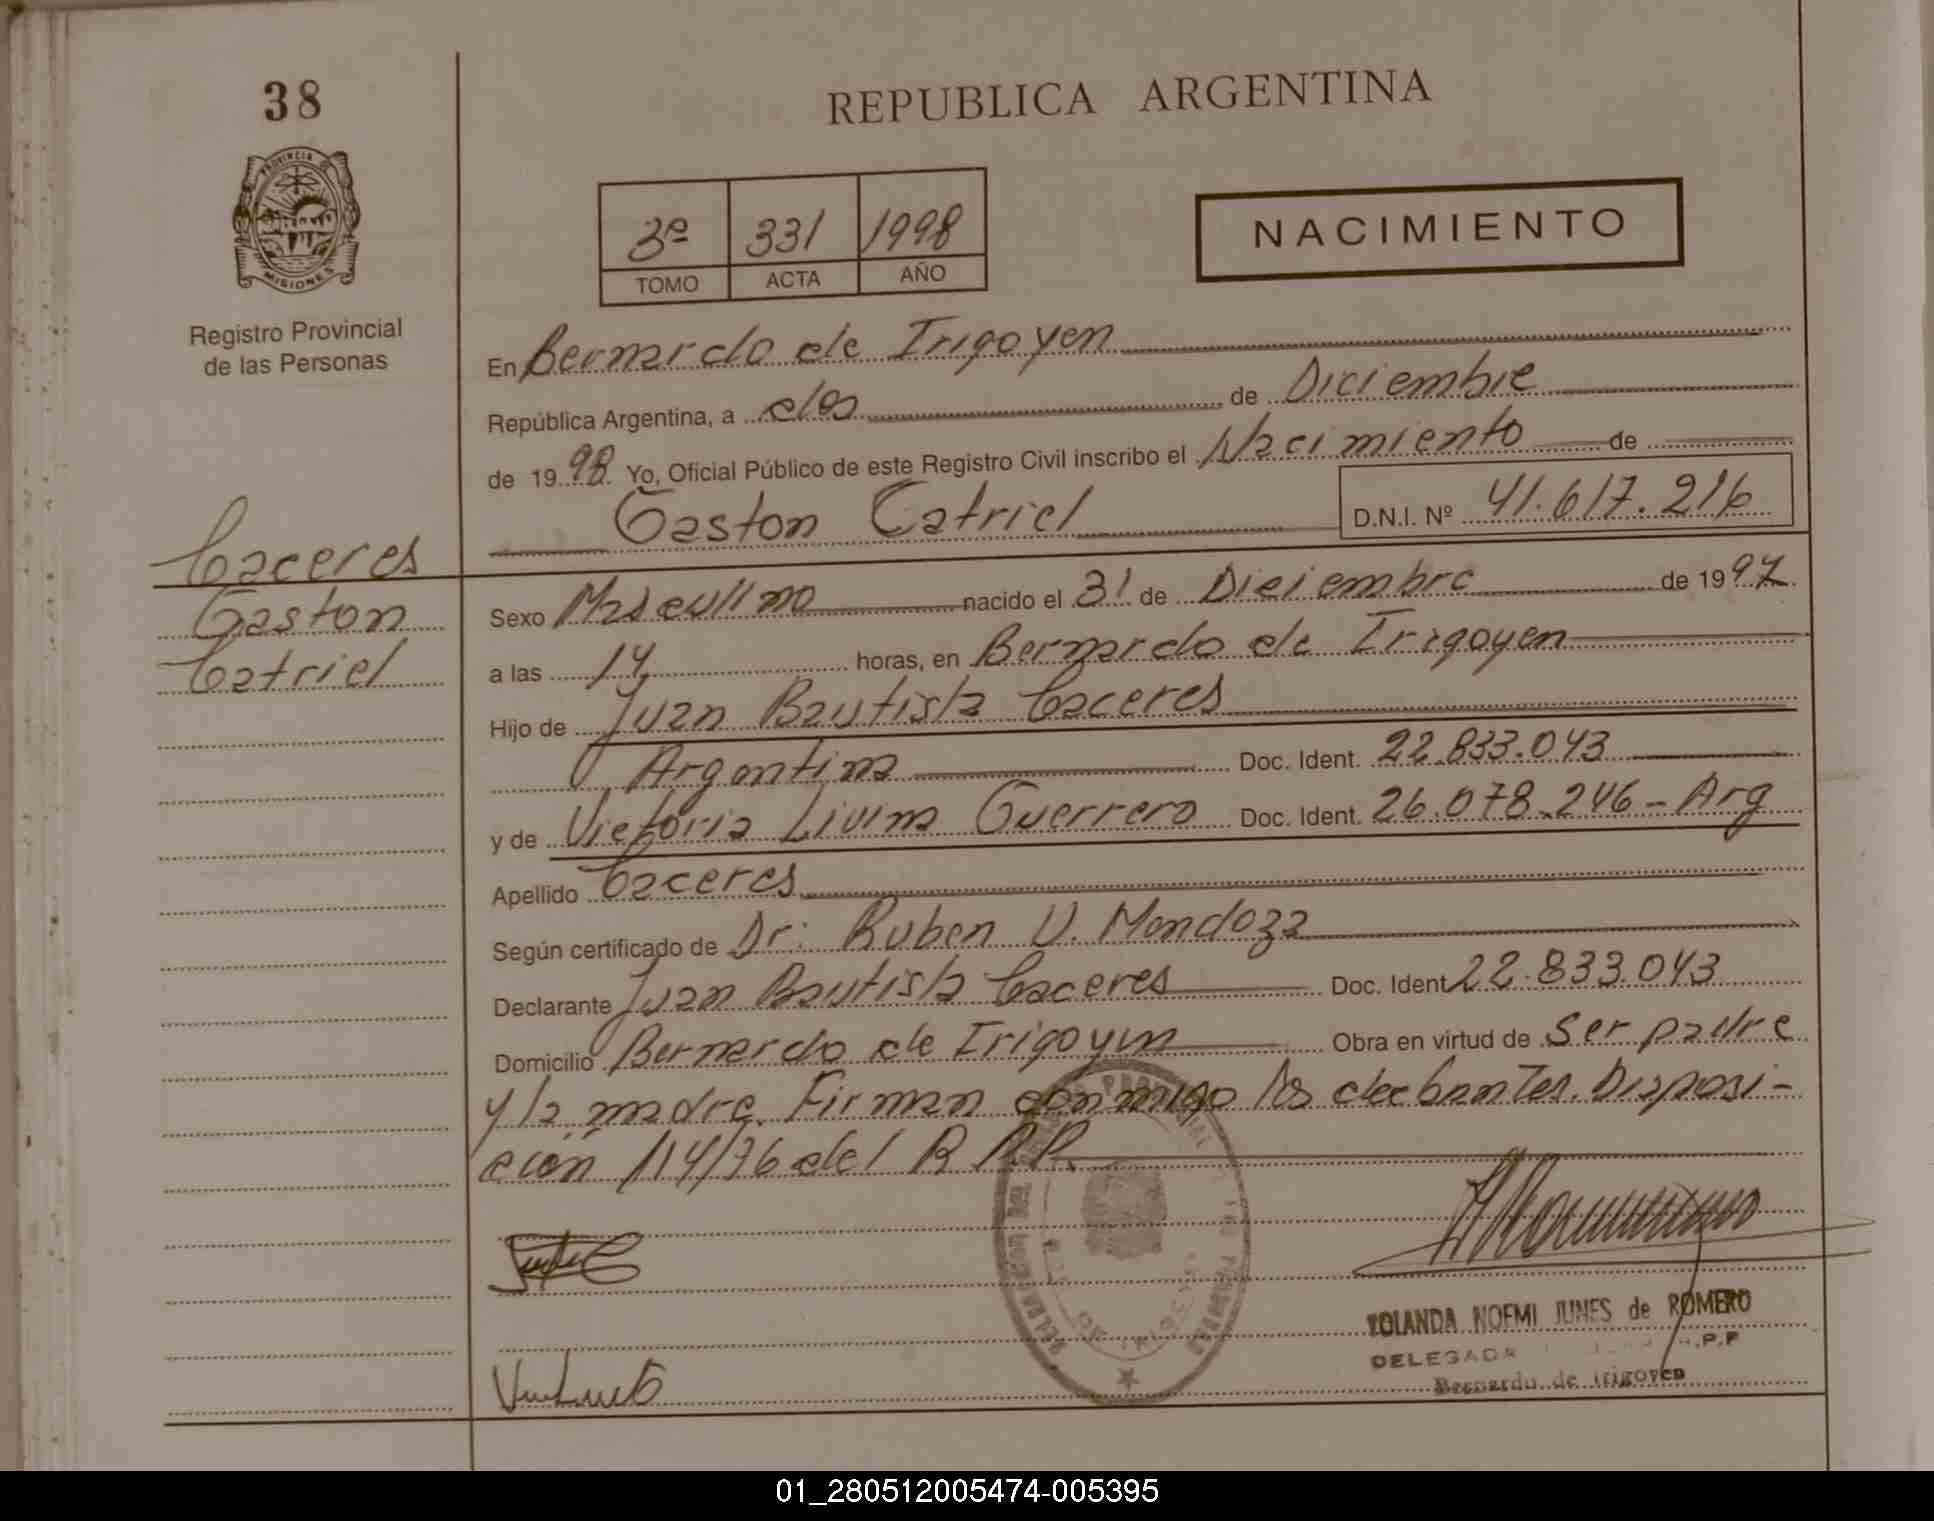 38
REPUBLICA ARGENTINA
PROVINCIA DE
MISIONES
Registro Provincial
de las Personas
3º 331 1998
TOMO ACTA AÑO
NACIMIENTO
En Bernardo de Irigoyen
República Argentina, a dos de Diciembre
de 1998 Yo, Oficial Público de este Registro Civil inscribo el Nacimiento de
Gaston Catriel D.N.I. Nº 41.617.216
Caceres
Gaston
Catriel
Sexo Masculino nacido el 31 de Diciembre de 1997
a las 14 horas, en Bernardo de Irigoyen
Hijo de Juan Bautista Caceres
Argentina Doc. Ident. 22.833.043
y de Victoria Livina Guerrero Doc. Ident. 26.078.246 - Arg
Apellido Caceres
Según certificado de Dr: Ruben V. Mendoza
Declarante Juan Bautista Caceres Doc. Ident 22.833.043
Domicilio Bernardo de Irigoyen Obra en virtud de Ser padre
y la madre. Firman conmigo los declarantes. Disposi-
ción 114/76 del R.P.P.
YOLANDA NOEMI JUNES de ROMERO
DELEGADA
Bernardo de Irigoyen
01_280512005474-005395